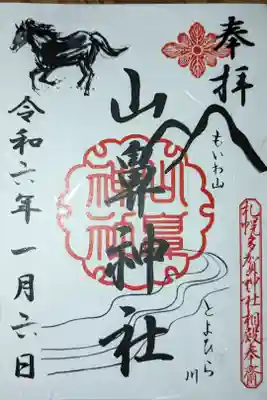 奉拝
もいわ山
札幌多賀神社相殿奉斎
山鼻神社
とよひら川
令和六年一月六日